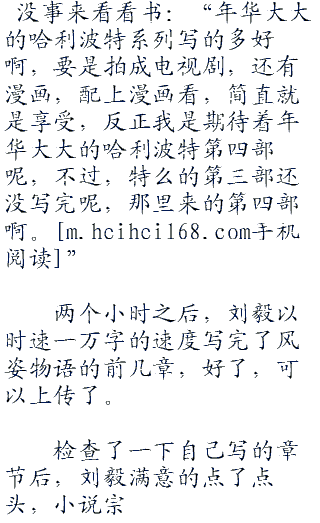 没事来看看书：“年华大大
的哈利波特系列写的多好
啊，要是拍成电视剧，还有
漫画，配上漫画看，简直就
是享受，反正我是期待着年
华大大的哈利波特第四部
呢，不过，特么的第三部还
没写完呢，那里来的第四部
啊。[m.hcihcil68.com手机
阅读]”
两个小时之后，刘毅以
时速一万字的速度写完了风
姿物语的前几章，好了，可
以上传了。
检查了一下自己写的章
节后，刘毅满意的点了点
头，小说宗